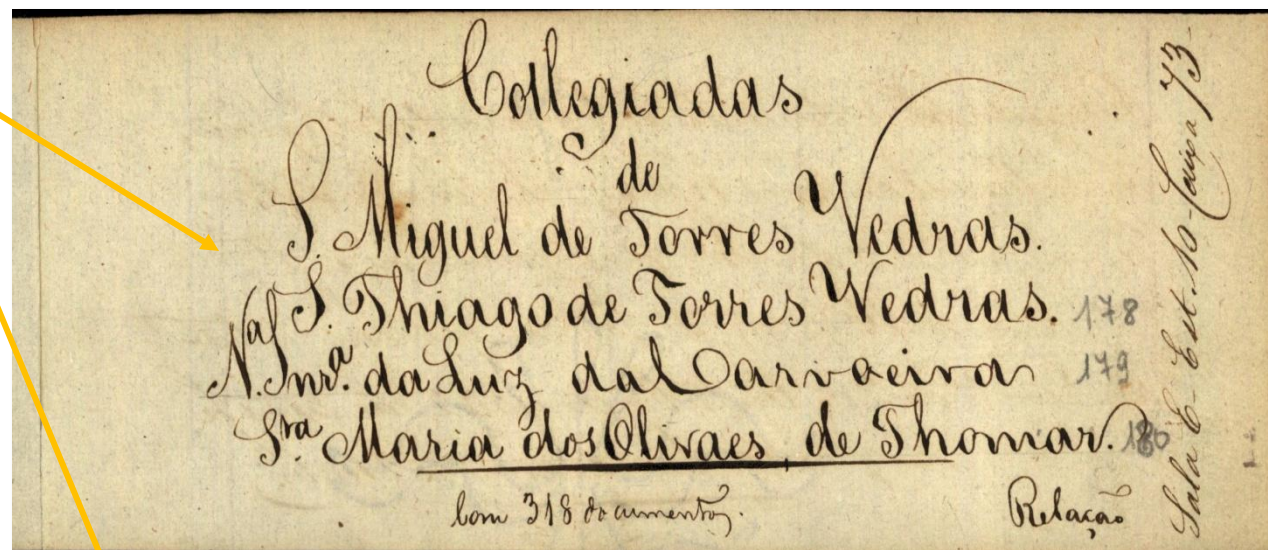 Collegiadas
de
S. Miguel de Torres Vedras.
S. Thiago de Torres Vedras. 178
N. Snrª. da Luz da Carvoeira 179
Sta Maria dos Olivaes, de Thomar. 180
Com 318 documentos.
Relação
Sala E- Est. 10- Caixa 73